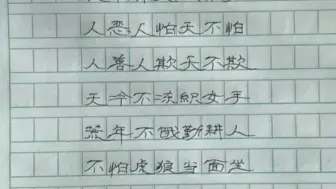 人恶人怕天不怕
人善人欺天不欺
天令不冻织女手
荒年不饿勤耕人
不怕虎狼当面坐